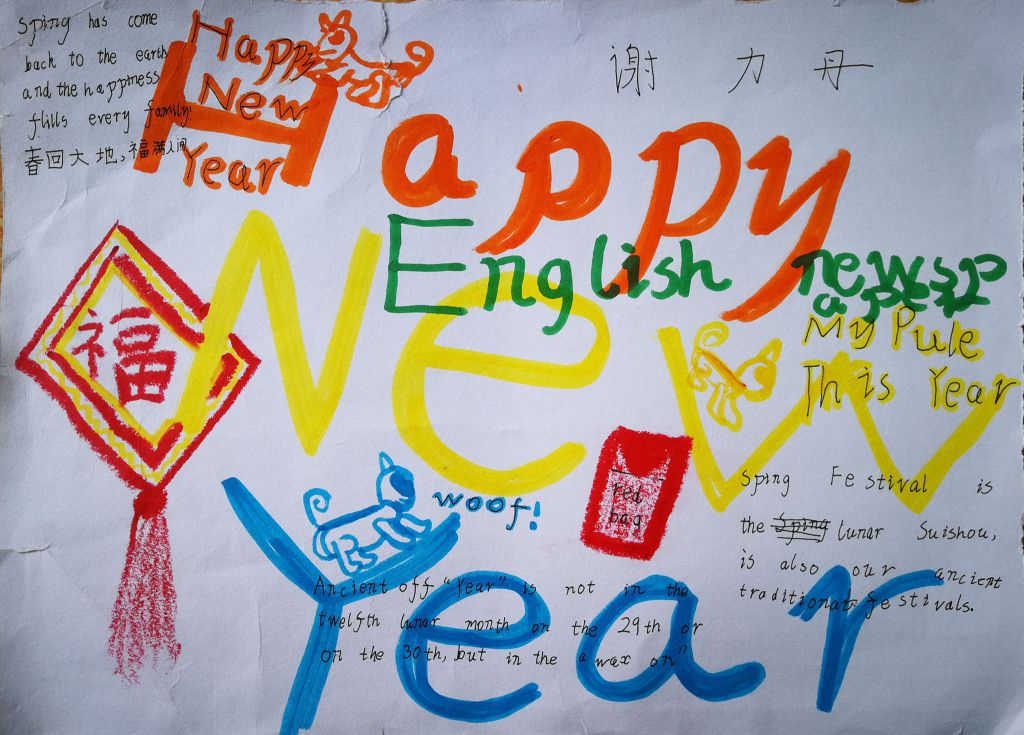 Sping has come
back to the earth
and the happiness
flills every family.
春回大地,福满人间
Happy
New
Year
谢力毋
Happy
New
Year
English newsp
aper
福
My Pule
This Year
woof!
red
bag
Sping Festival is
the lunar Suishou,
is also our ancient
traditional festivals.
Ancient off "Year" is not in the
twelfth lunar month on the 29th or
on the 30th, but in the "wax on"